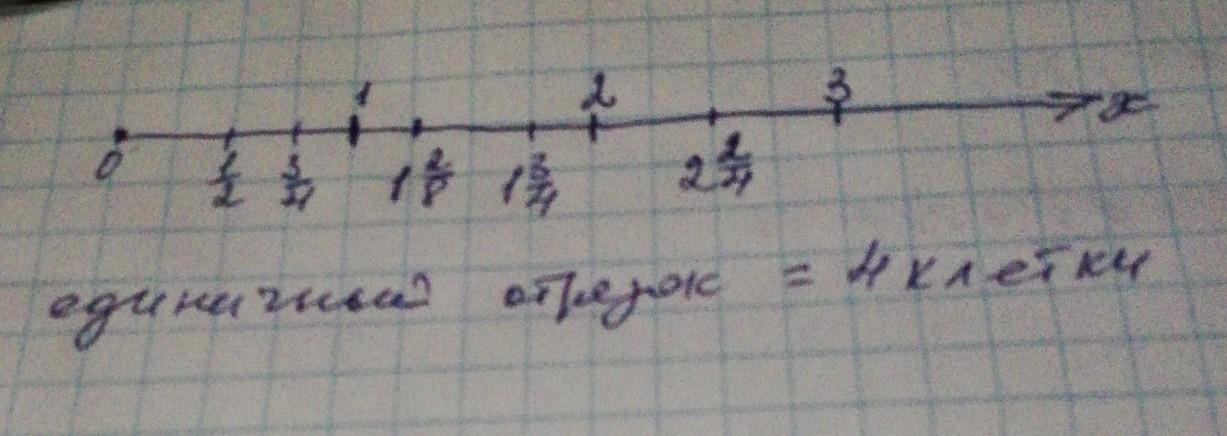 1 2 3
0 1/2 3/4 1 2/8 1 3/4 2 2/4 x
единичный отрезок = 4 клетки